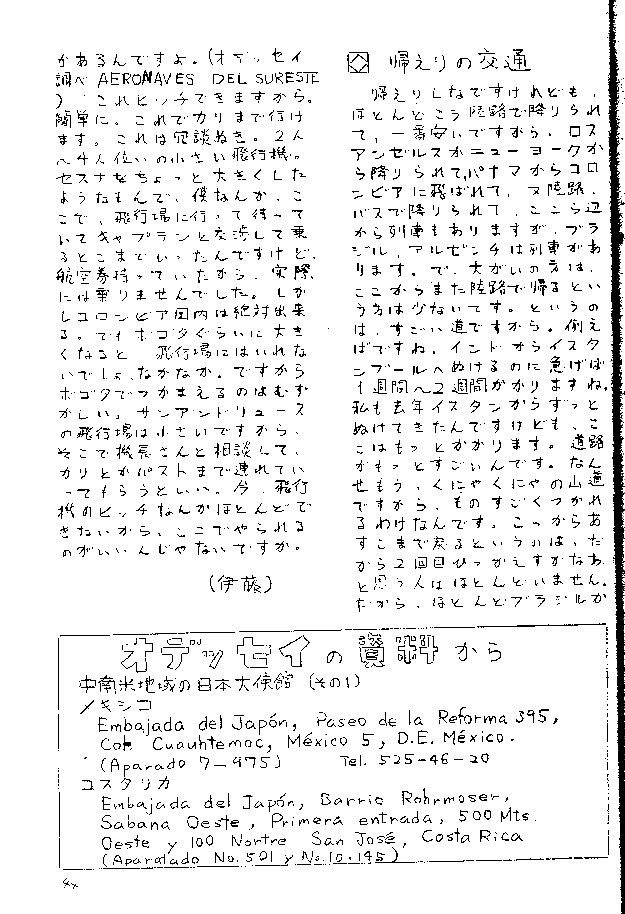 があるんですよ。(オデッセイ
調べ AERONAVES DEL SURESTE
) これヒッチできますから。
簡単に。これでカリまで行け
ます。これは冗談ぬき。2人
へ4人位いの小さい飛行機。
セスナをちょっと大きくした
ようなもんで、僕なんか、こ
こで、飛行場に行って待って
いてキャプランと交渉して乗
るとこまでいったんですけど、
航空券持っていたから、実際
には乗りませんでした。しか
しコロンビア国内は絶対出来
る。でもボゴタぐらいに大き
くなると、飛行場にはいれな
いでしょ、なかなか。ですから
ボゴタでつかまえるのはむず
かしい。サンアンドリュース
の飛行場は小さいですから、
そこで機長さんと相談して、
カリとかパストまで連れてい
ってもらうといい。今、飛行
機のヒッチなんかほとんどで
きないから、ここでやられる
のがいいんじゃないですか。
(伊藤)
帰えりの交通
帰えりしなですけれども、
ほとんどこう陸路で降りられ
て、一番安いですから、ロス
アンゼルスかニューヨークか
ら降りられて、パナマからコロ
ンビアに飛ばれて、又陸路、
バスで降りられて、ここら辺
から列車もありますが、ブラ
ジル、アルゼンチは列車があ
ります。で、大がいの人は、
ここからまた陸路で帰るとい
う方は少ないです。というの
は、すごい道ですから。例え
ばですね、インドからイスタ
ンブールへぬけるのに急げば
1週間へ2週間かかりますね。
私も去年イスタンからずっと
ぬけてきたんですけども、こ
こはもっとかかります。道路
がもっとすごいんです。なん
せもう、くにゃくにゃの山道
ですから、ものすごくつかれ
るわけなんです。こっからあ
すこまで戻るというのは、だ
から2回目ひっかえすかなあ
と思う人はほとんどいません。
だから、ほとんどブラジルか
オデッセイの資料から
中南米地域の日本大使館(その1)
メキシコ
Embajada del Japón, Paseo de la Reforma 395,
Col. Cuauhtemoc, México 5, D.E. México.
(Aparado 7-975) Tel. 525-46-20
コスタリカ
Embajada del Japón, Barrio Rohrmoser,
Sabana Oeste, Primera entrada, 500 Mts.
Oeste y 100 Nortre San José, Costa Rica
(Aparatado No. 501 y No. 10.145)